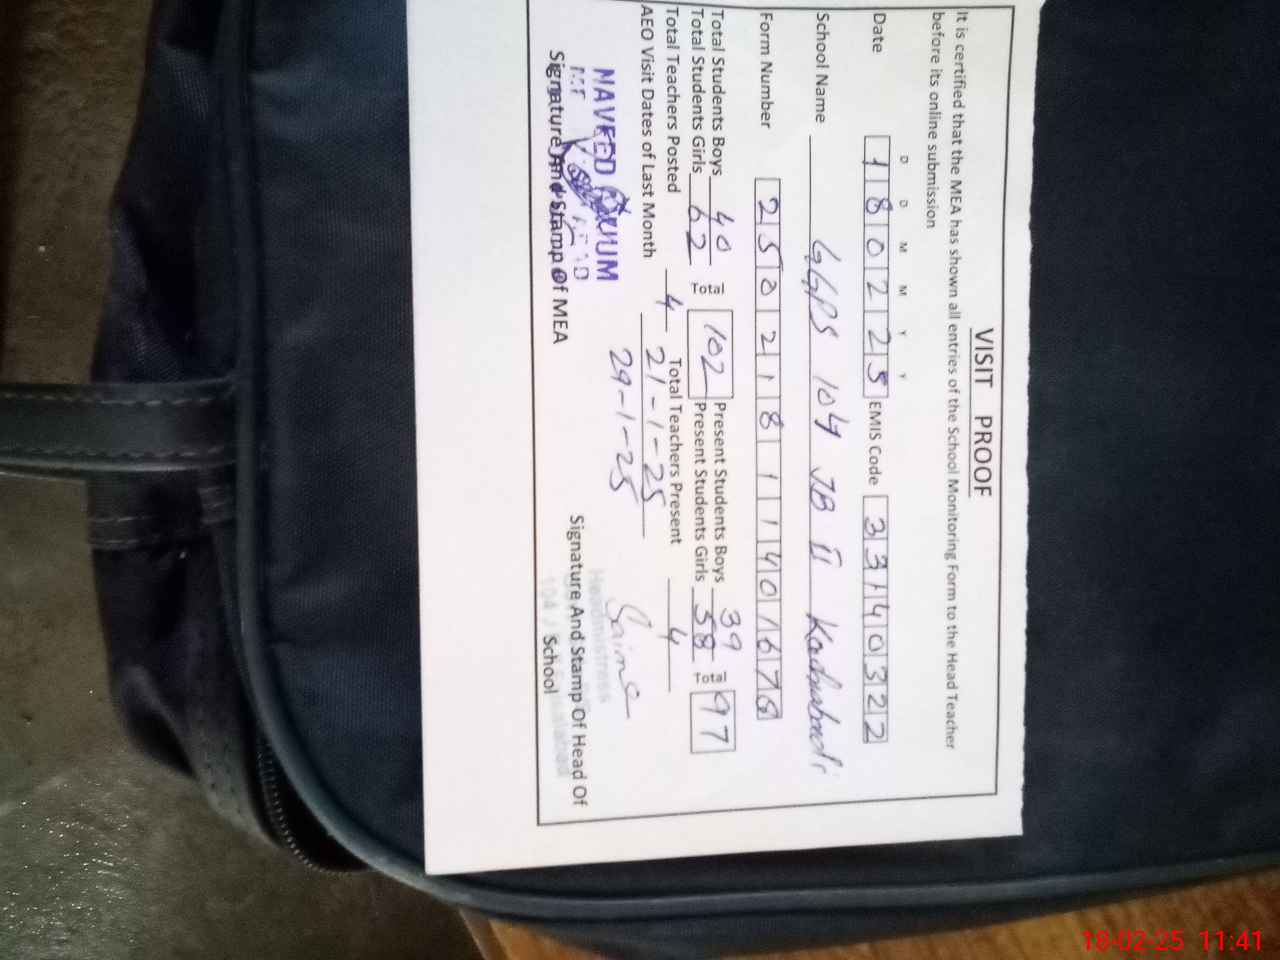 VISIT PROOF
It is certified that the MEA has shown all entries of the School Monitoring Form to the Head Teacher
before its online submission
D D M M Y Y
Date 1 8 0 2 2 5 EMIS Code 3 3 1 4 0 3 2 2
School Name GGPS 104 JB II
Form Number 2 5 0 2 1 8 1 1 1 4 0 1 6 7 6
Total Students Boys 40 Total 102 Present Students Boys 39 Total 97
Total Students Girls 62 Present Students Girls 58
Total Teachers Posted 4 Total Teachers Present 4
AEO Visit Dates of Last Month 21-1-25
29-1-25
NAVEED
Saima
Headmistress
104 J
Signature And Stamp Of MEA
Signature And Stamp Of Head Of
School
18-02-25 11:41